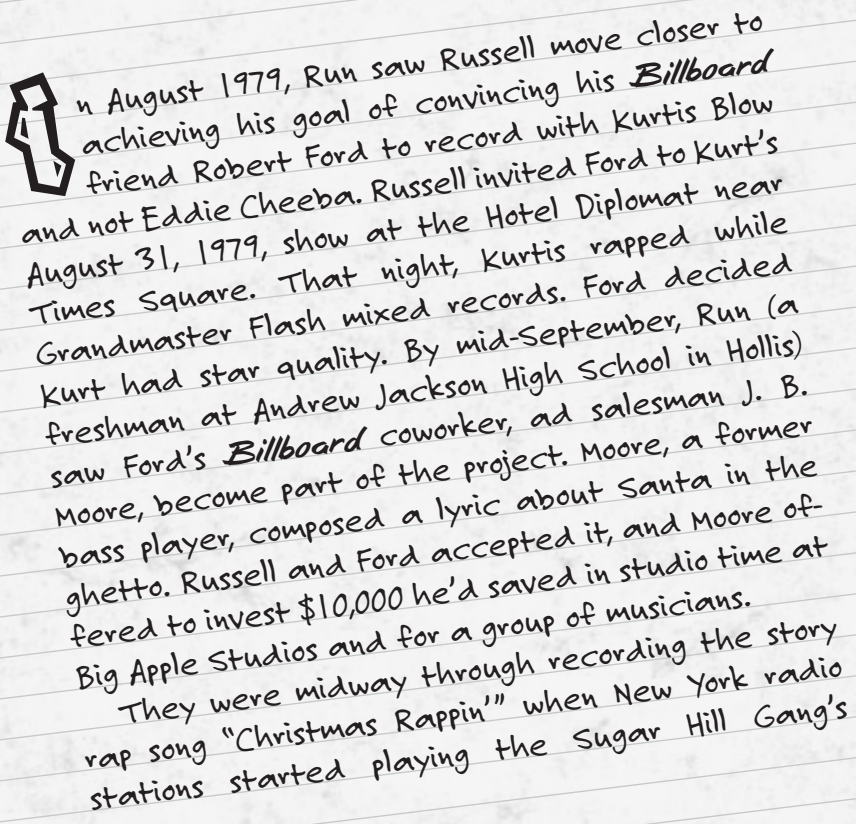 In August 1979, Run saw Russell move closer to
achieving his goal of convincing his Billboard
friend Robert Ford to record with Kurtis Blow
and not Eddie Cheeba. Russell invited Ford to Kurt's
August 31, 1979, show at the Hotel Diplomat near
Times Square. That night, Kurtis rapped while
Grandmaster Flash mixed records. Ford decided
Kurt had star quality. By mid-September, Run (a
freshman at Andrew Jackson High School in Hollis)
saw Ford's Billboard coworker, ad salesman J. B.
Moore, become part of the project. Moore, a former
bass player, composed a lyric about Santa in the
ghetto. Russell and Ford accepted it, and Moore of-
fered to invest $10,000 he'd saved in studio time at
Big Apple Studios and for a group of musicians.
They were midway through recording the story
rap song "Christmas Rappin'" when New York radio
stations started playing the Sugar Hill Gang's